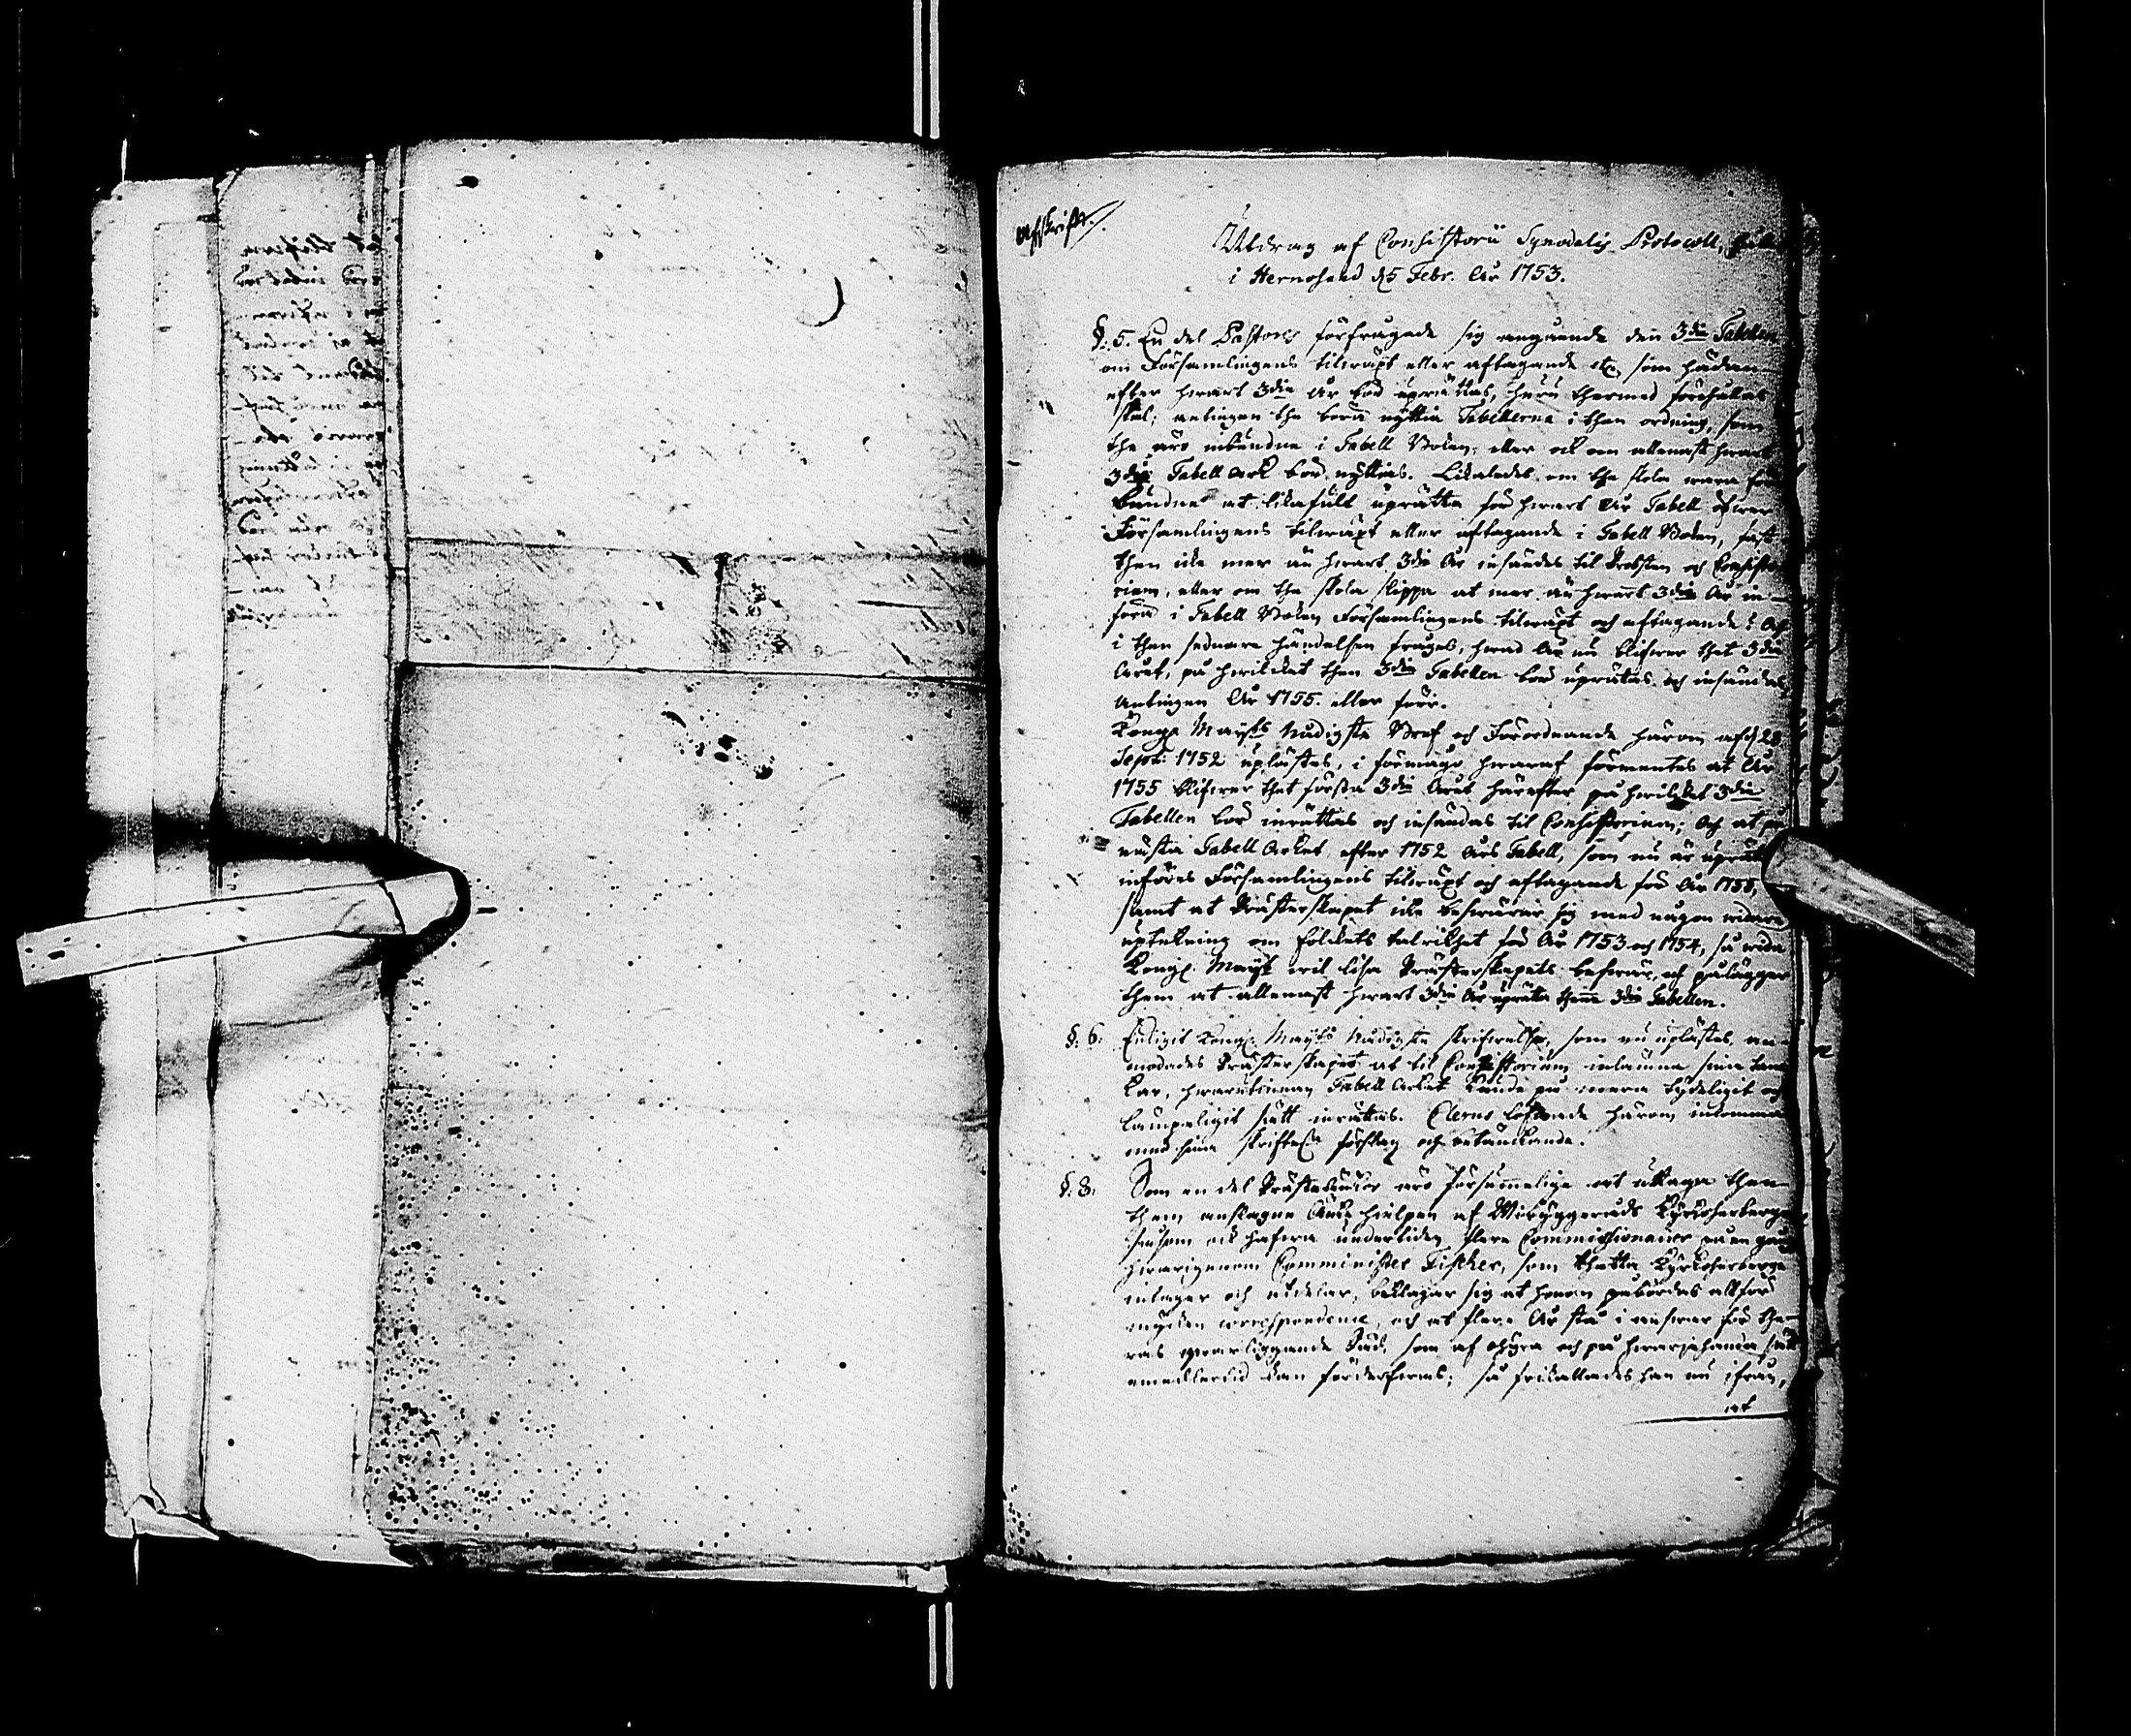 Afskrift.
Utdrag af Consistorii Synodalis Protocoll,
i Hernosand d. 5 Febr. År 1753.
§. 5. En del Pastores förfrågade sig angående den 3die Tabellen
om Församlingens tilwäxt eller aftagande etc. som hädan
efter hwart 3die År bör uprättas, huru thermed förehållas
skal; antingen the böra nyttia Tabellerna i then ordning, som
the äro inbundne i Tabell Boken, eller ock om allenast hwart
3die Tabell Ark bör nyttias. Likaledes om the skola wara för
bundne at likafult uprätta för hwart År Tabell öfwer
Församlingens tilwäxt eller aftagande i Tabell Boken, fast
then icke mer än hwart 3die År insändes til Probsten och Consisto
rium, eller om the skola slippa at mer än hwart 3die År in-
föra i Tabell Boken Församlingens tilwäxt och aftagande? Och
i then sednare händelsen frågas, hwad År nu blifwer thet 3die
Året, på hwilcket then 3die Tabellen bör uprättas och insändas,
Antingen År 1755. eller förr.
Kongl. Maysts Nådigste Bref och Förordnande härom af d. 28
Sept: 1752 uplästes, i förmågo hwaraf förmentes at År
1755 blifwer thet första 3die Året härefter på hwilcket 3die
Tabellen bör inrättas och insändas til Consistorium; Och at på
nästa Tabell Arket efter 1752 Års Tabell, som nu är uprättad
införes Församlingens tilwäxt och aftagande för År 1755,
samt at Prästerskapet icke beswärar sig med någon widare
uptekning om folckets talrikhet för År 1753 och 1754, så wida
Kongl. Mayst wil lisa Prästerskapets beswär, och pålägger
them at allenast hwart 3die År uprätta thenna 3die Tabellen.
§. 6. Enligit Kongl. Maysts Nådigste skrifwelse, som nu uplästes, an-
modades Prästerskapet at til Consistorium inlämna sina tan
kar, hwarutinnan Tabell Arket kunde på mera tydeligit och
lämpeligit sätt inrättas. Clerus lofwade härom inkomma
med sina skriftel. förslag och betänckande.
§. 8. Som en del Prästeänckor äro försumelige at uttaga then
them anslagne Ancke hielpen af Wibyggeråds Kyrckoherberge
såsom ock hafwa undertiden flere Commissionairer på en gång
hwarigenom Comminister Fischer, som thetta Kyrckoherberge
intager och utdelar, beklagar sig at honom påbördas altför
mycken correspondence, och at flere År stå i answar för the
ras qwarliggande Säd, som af ohyra och på hwarjehanda sätt
emedlertid kan förderfwas; så frikallades han nu ifrån,
at